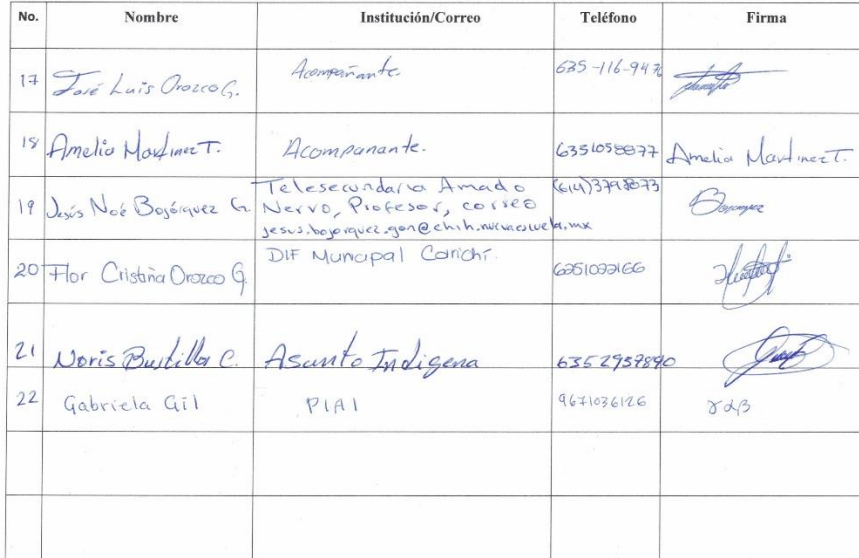 No. Nombre Institución/Correo Teléfono Firma
17 José Luis Orozco G. Acompañante. 635-116-9476
18 Amelia Martinez T. Acompanante. 6351058877 Amelia Martinez T.
19 Jesús Noé Bojórquez G. Telesecundaria Amado
Nervo, Profesor, correo
jesus.bojorquez.gon@chih.nuevaescuela.mx
(614)3798073
20 Flor Cristina Orozco G. DIF Municipal Carichí.
21 Noris Bustillos C. Asunto Indigena 6352957890
22 Gabriela Gil PIAI 9671036126 γαβ